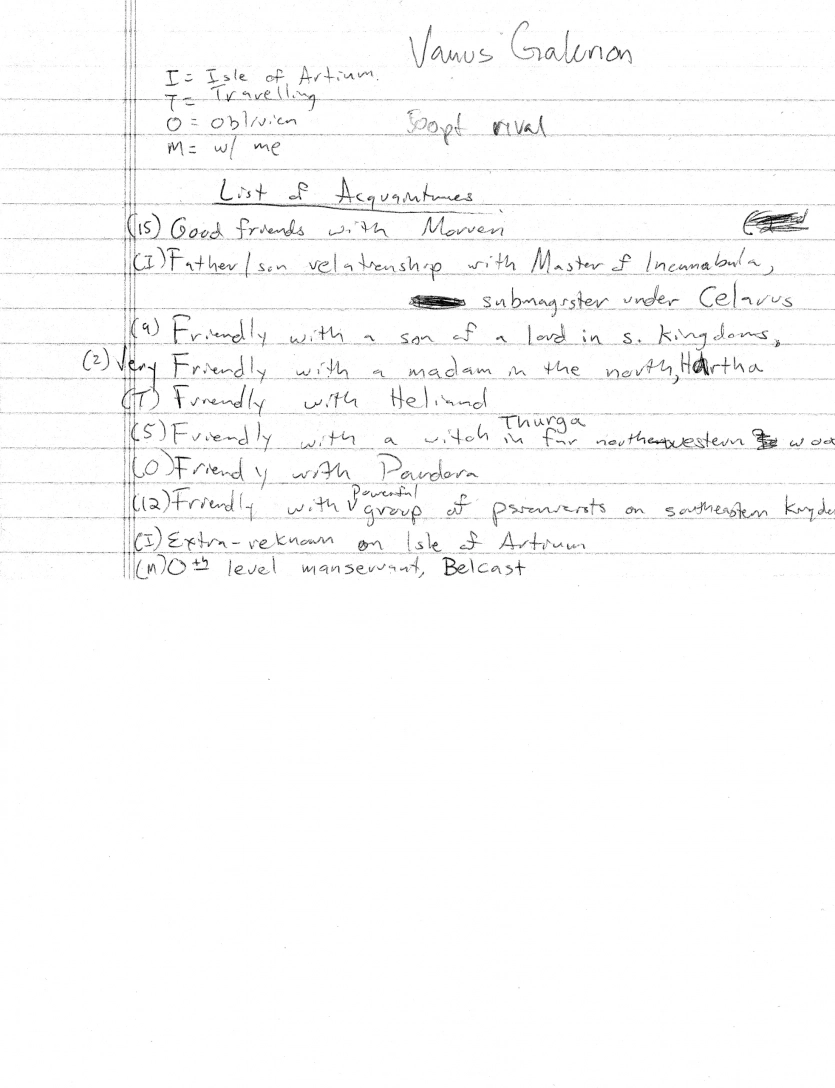 Vanus Galerion
I = Isle of Artium.
T = Travelling
O = oblivion
M = w/ me
500pt rival
List of Acquaintances
(15) Good friends with Morven
(I) Father/son relationship with Master of Incunabula,
submagister under Celarus
(9) Friendly with a son of a lord in s. kingdoms,
(2) Very Friendly with a madam in the north, Hartha
(T) Friendly with Heliand
(5) Friendly with a witch Thurga in far northwestern woo
(O) Friendly with Pandora
(12) Friendly with powerful group of on southeastern kingdo
(I) Extra-reknown on Isle of Artium
(M) 0th level manservant, Belcast